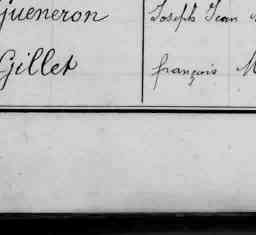 Gueneron Joseph Jean
Gillet françois M